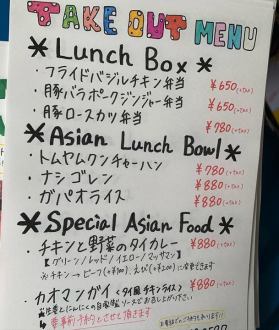 TAKE OUT MENU
*Lunch Box*
・フライドバジルチキン弁当 ¥650(+tax)
・豚バラポークジンジャー弁当 ¥650(+tax)
・豚ロースカツ弁当 ¥780(+tax)
*Asian Lunch Bowl*
・トムヤムクンチャーハン ¥780(+tax)
・ナシゴレン ¥880(+tax)
・ガパオライス ¥880(+tax)
*Special Asian Food*
・チキンと野菜のタイカレー ¥880(+tax)
【グリーン/レッド/イエロー/マッサマン】
※チキン→ビーフ(+¥100)、えび(+¥200)に変更できます
・カオマンガイ <タイ風チキンライス> ¥880(+tax)